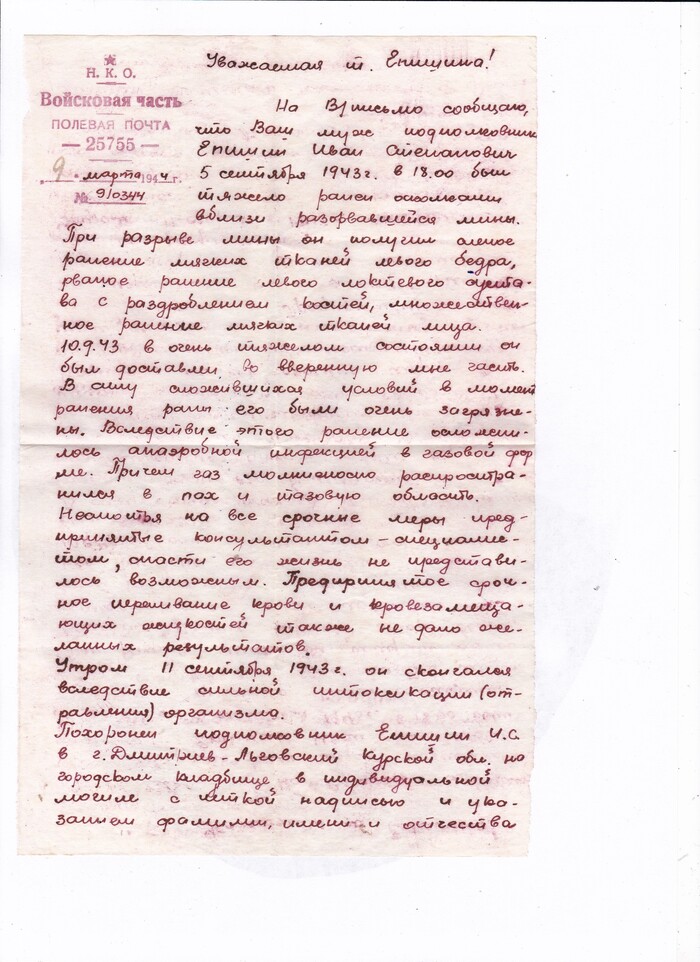 Н. К. О.
Войсковая часть
ПОЛЕВАЯ ПОЧТА
— 25755 —
9 марта 1944 г.
№ 910344
Уважаемая т. Епишина!
На В/письмо сообщаю,
что Ваш муж подполковник
Епишин Иван Степанович
5 сентября 1943 г. в 18.00 был
тяжело ранен осколками
вблизи разорвавшейся мины.
При разрыве мины он получил слепое
ранение мягких тканей левого бедра,
рваное ранение левого локтевого суста-
ва с раздроблением костей, множествен-
ное ранение мягких тканей лица.
10.9.43 в очень тяжелом состоянии он
был доставлен во вверенную мне часть.
В силу сложившихся условий в момент
ранения раны его были очень загрязне-
ны. Вследствие этого ранение осложни-
лось анаэробной инфекцией в газовой фор
ме. Причем газ молниеносно распростра-
нился в пах и тазовую область.
Несмотря на все срочные меры пред-
принятые консультантом-специалис-
том, спасти его жизнь не представи-
лось возможным. Предпринятое сроч-
ное переливание крови и кровезамеща-
ющих жидкостей также не дало же-
ланных результатов.
Утром 11 сентября 1943 г. он скончался
вследствие сильной интоксикации (от-
равления) организма.
Похоронен подполковник Епишин И.С.
в г. Дмитриев-Льговский Курской обл. на
городском кладбище в индивидуальной
могиле с четкой надписью и ука-
занием фамилии, имени и отчества